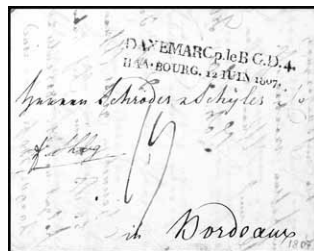 DANEMARC p. le B G. D. 4.
HAMBOURG. 12 JUIN 1807.
Herren Schröder & Schÿler
in Bordeaux
1807